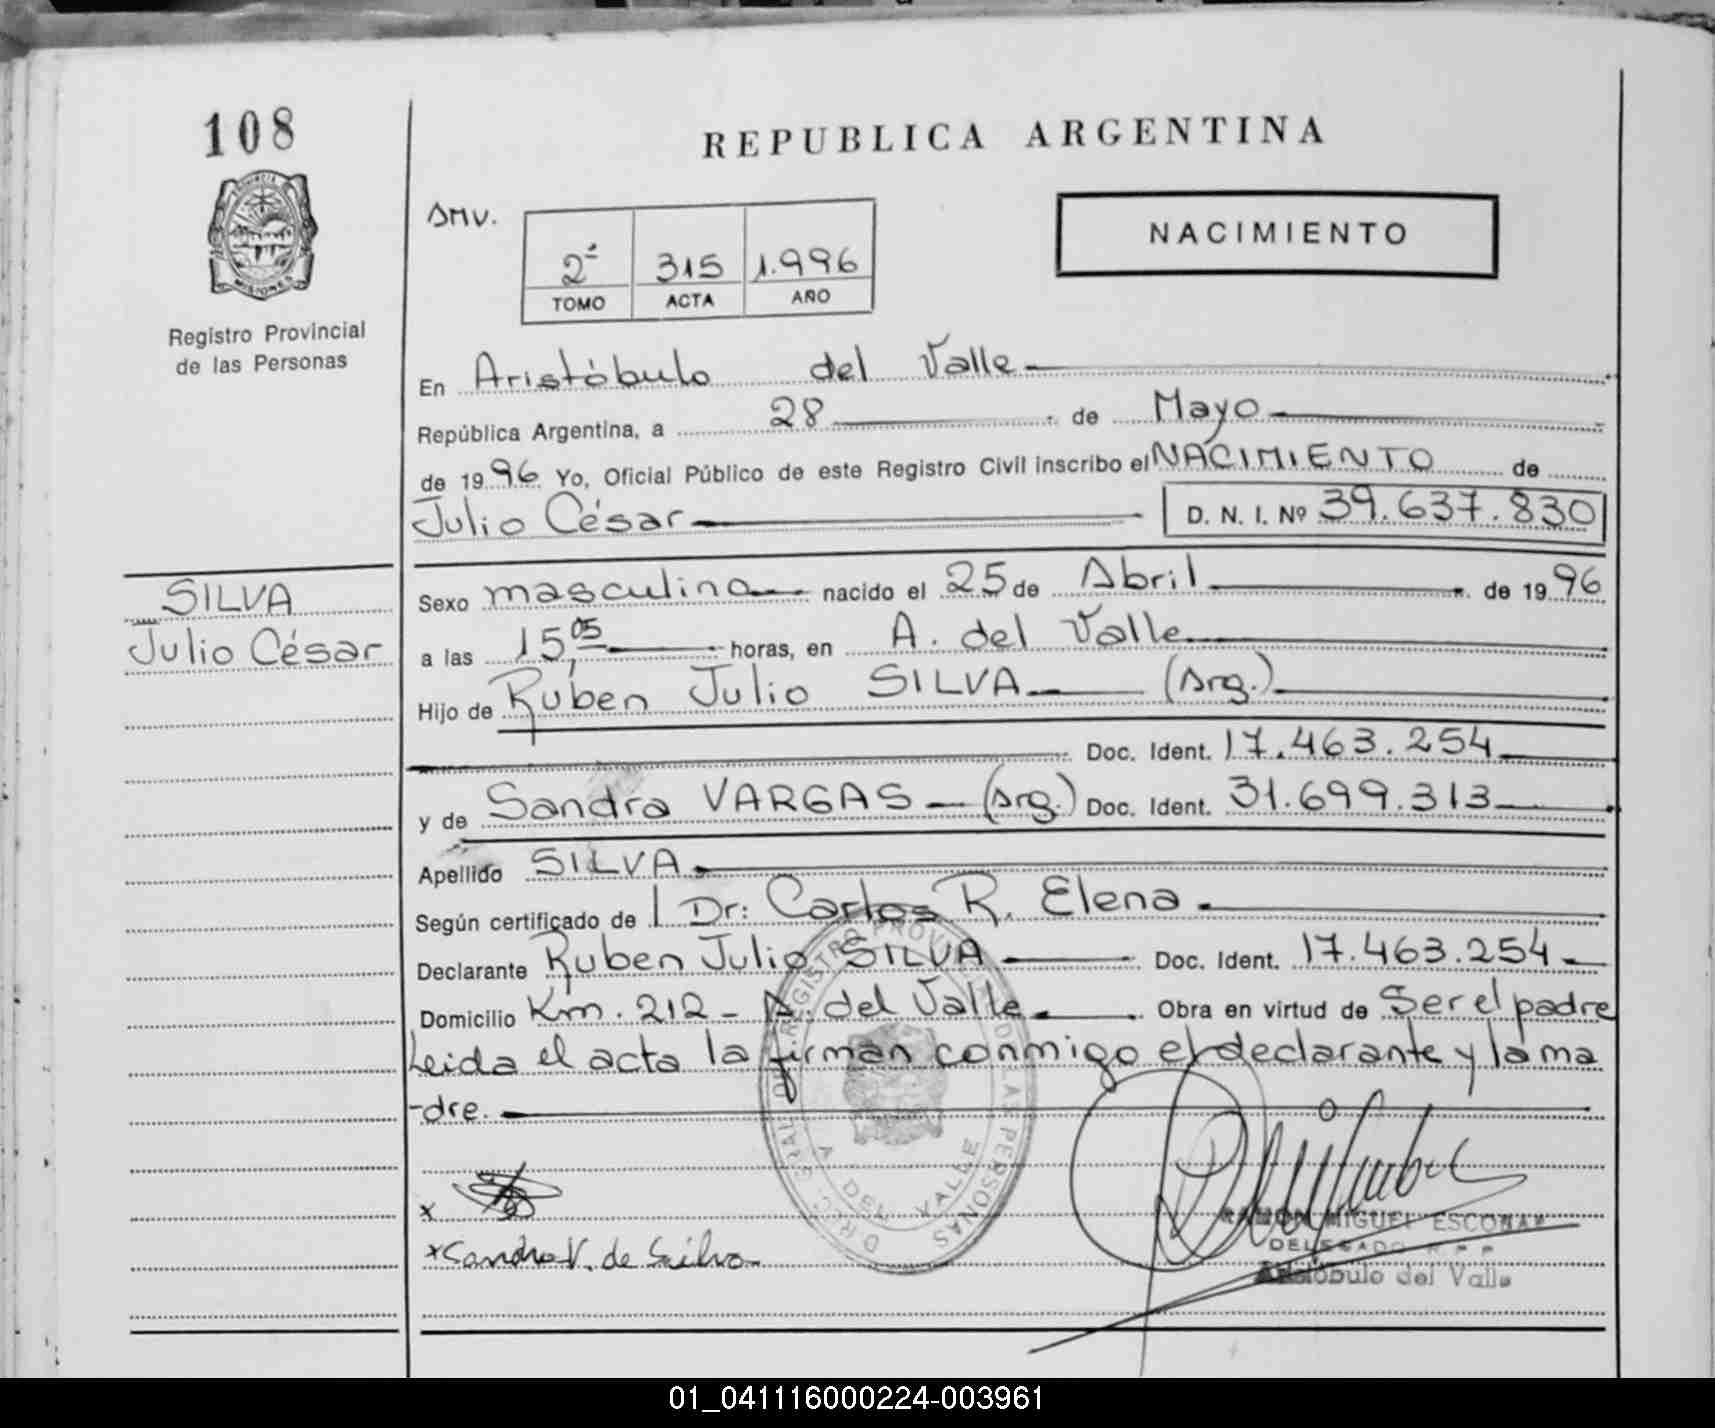 108
REPUBLICA ARGENTINA
PROVINCIA DE
MISIONES
Registro Provincial
de las Personas
AMV.
2º 315 1.996
TOMO ACTA AÑO
NACIMIENTO
En Aristóbulo del Valle
República Argentina, a 28 de Mayo
de 1996 Yo, Oficial Público de este Registro Civil inscribo el NACIMIENTO de
Julio César D. N. I. Nº 39.637.830
SILVA
Julio César
Sexo masculino nacido el 25 de Abril de 1996
a las 15,05 horas, en A. del Valle
Hijo de Ruben Julio SILVA (Arg.)
Doc. Ident. 17.463.254
y de Sandra VARGAS (Arg.) Doc. Ident. 31.699.313
Apellido SILVA
Según certificado de Dr: Carlos R. Elena
Declarante Ruben Julio SILVA Doc. Ident. 17.463.254
Domicilio Km. 212 - A. del Valle Obra en virtud de Ser el padre
Leida el acta la firman conmigo el declarante y la ma
-dre.
x
x Sandra V. de Silva
REGISTRO PROVINCIAL DE LAS PERSONAS
A. DEL VALLE
RAMON MIGUEL ESCOBAR
DELEGADO R.P.P
Aristóbulo del Valle
01_041116000224-003961